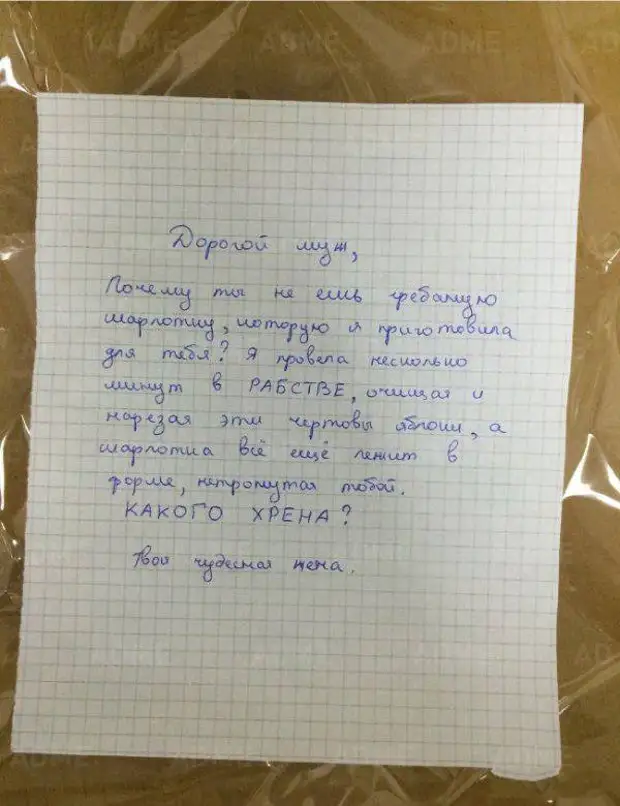 ADME
ADME
ADME
Дорогой муж,
Почему ты не ешь гребаную
шарлотку, которую я приготовила
для тебя? Я провела несколько
минут в РАБСТВЕ, очищая и
нарезая эти чертовы яблоки, а
шарлотка всё ещё лежит в
форме, нетронутая тобой.
КАКОГО ХРЕНА?
Твоя чудесная жена.
ADME